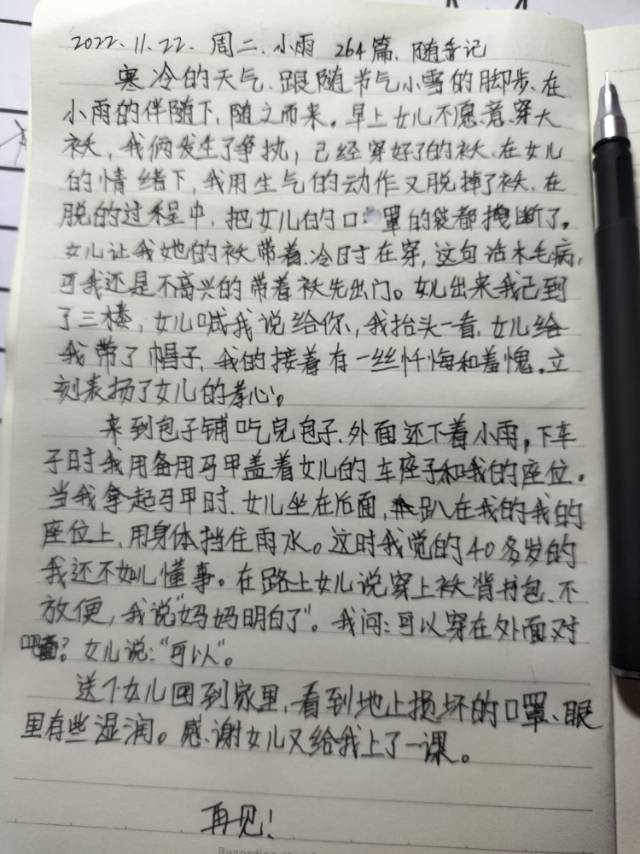 2022.11.22. 周二.小雨 264篇.随手记
寒冷的天气.跟随节气小雪的脚步.在
小雨的伴随下,随之而来。早上女儿不愿意穿大
袄,我俩发生了争执,已经穿好了的袄.在女儿
的情绪下,我用生气的动作又脱掉了袄.在
脱的过程中,把女儿的口罩的袋都拽断了。
女儿让我她的袄带着.冷时在穿,这句话木毛病,
可我还是不高兴的带着袄先出门。女儿出来我已到
了三楼,女儿喊我说给你,我抬头一看.女儿给
我带了帽子,我的接着有一丝忏悔和羞愧.立
刻表扬了女儿的孝心。
来到包子铺吃完包子.外面还下着小雨,下车
子时我用备用马甲盖着女儿的车座子和我的座位。
当我拿起马甲时.女儿坐在后面,趴在我的我的
座位上,用身体挡住雨水。这时我觉的40多岁的
我还不如儿懂事。在路上女儿说穿上袄背书包.不
放便,我说"妈妈明白了"。我问:可以穿在外面对
吗?女儿说:"可以"。
送下女儿回到家里,看到地上损坏的口罩、眼
里有些湿润。感谢女儿又给我上了一课。
再见!